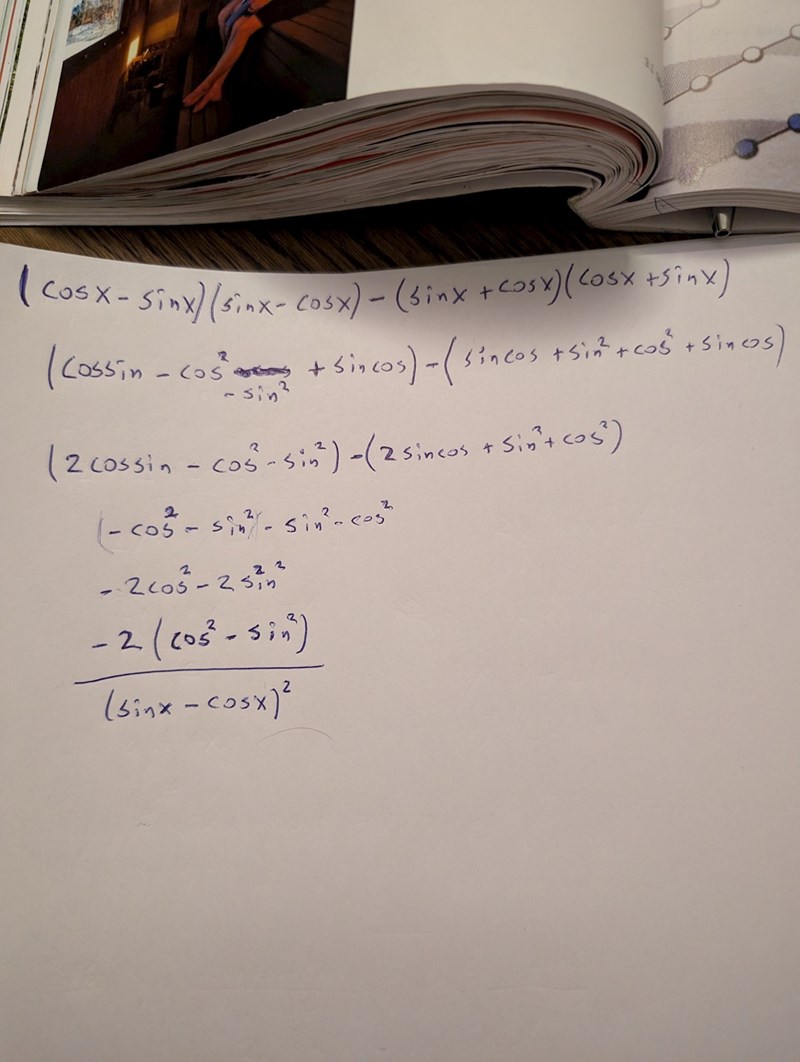 (cosx - sinx)(sinx - cosx) - (sinx + cosx)(cosx + sinx)
(cossin - cos² - sin² + sincos) - (sincos + sin² + cos² + sincos)
(2cossin - cos² - sin²) - (2sincos + sin² + cos²)
(-cos² - sin²) - sin² - cos²
-2cos² - 2sin²
-2(cos² - sin²)
(sinx - cosx)²